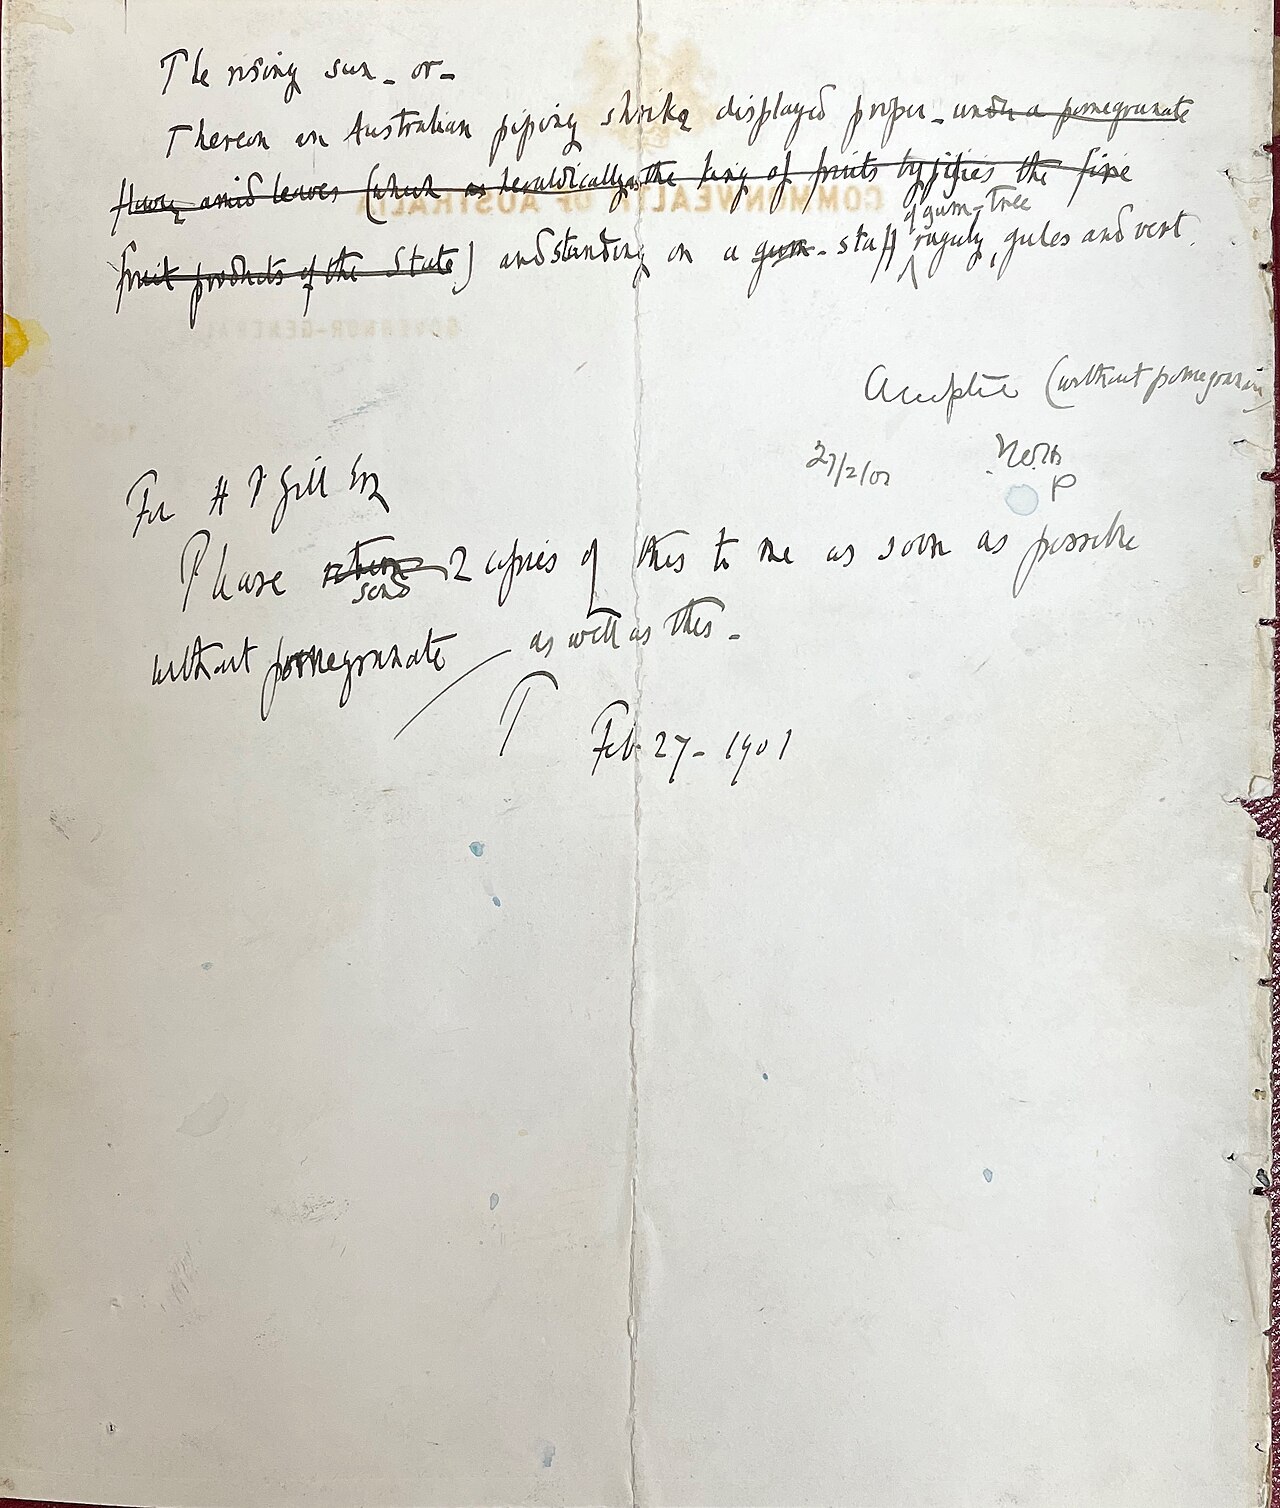 The rising sun - or -
Thereon an Australian piping shrike displayed proper - under a pomegranate
amid leaves (which as heraldically the king of fruits typifies the fine
fruit products of the State) and standing on a gum - staff raguly, gules and vert.
of gum-tree
COMMONWEALTH OF AUSTRALIA
GOVERNOR-GENERAL
(without pomegranate)
27/2/01
P
For H P Gill Esq
Please return 2 copies of this to me as soon as possible
send
without pomegranate as well as this -
T Feb. 27 - 1901